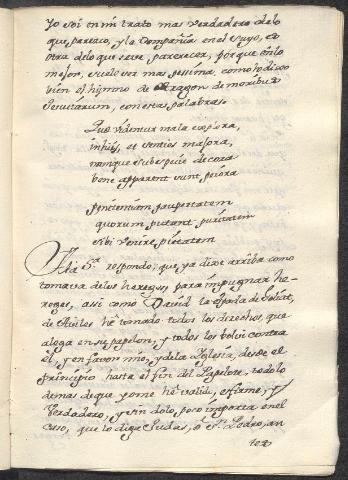 Yo soi en mi trato mas verdadero delo
que parezco, y la Compañia en el suyo, es
otra delo que seve parecer, porque en lo
mejor, suele ser mas pessima, como lo dixo
bien el hymno de Aragon de moribus
Jesuitarum, con estas palabras.
Quo videntur mala
inhies, et senties majora,
namque sub specie decora
bene apparent sunt pejora
penitentiam paupertatem
quorum putant puritatem
sibi venire pietatem
Ala 5.ª respondo; que ya dixe arriba como
tomava delos hereges, para impugnar he-
reges, assi como David la espada de Goliat,
de Aviles he tomado todos los derechos, que
alega en su papelon, y todos los bolvi contra
èl, y en favor mio, y dela Yglesia, desde el
principio hasta el fin del Papelote, todo lo
demas de que yo me hè valido, es firme, y
verdadero, y sin dolo, poco importa en el
caso, que lo diga Judas, ò S.n Pedro, an
tes